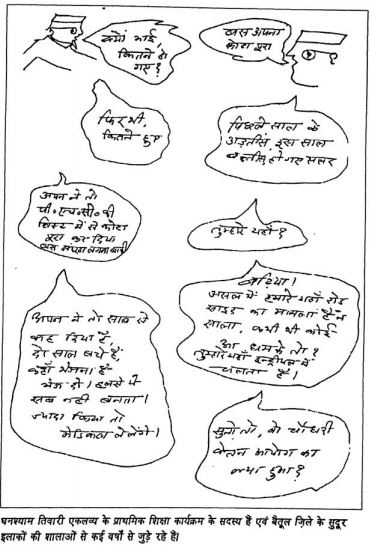 क्यों भाई,
कितने हो
गए?
बस अपना
कोटा पूरा
फिर भी,
कितने हुए
पिछले साल के
अड़तीस, इस साल
हो गए सत्तर
अपन ने तो
पी॰एच॰सी॰ की
लिस्ट में से कोटा
पूरा कर दिया
तुम्हारे यहाँ?
बढ़िया!
असल में हमारे यहाँ रोड
साइड का मामला है न
साला, कभी भी कोई
आ धमके तो?
तुम्हारे यहाँ इन्टीरियल में
चलता है।
अपन ने तो साब से
कह दिया है
दो साल बचे हैं,
कहाँ भेजना है
भेज दो। हमसे ये
सब नहीं बनता।
ज्यादा किया तो
मेडिकल ले लेंगे।
सुनो तो, वो चौधरी
वेतन आयोग का
क्या हुआ?
घनश्याम तिवारी एकलव्य के प्राथमिक शिक्षा कार्यक्रम के सदस्य हैं एवं बैतूल ज़िले के सुदूर
इलाकों की शालाओं से कई वर्षों से जुड़े रहे हैं।